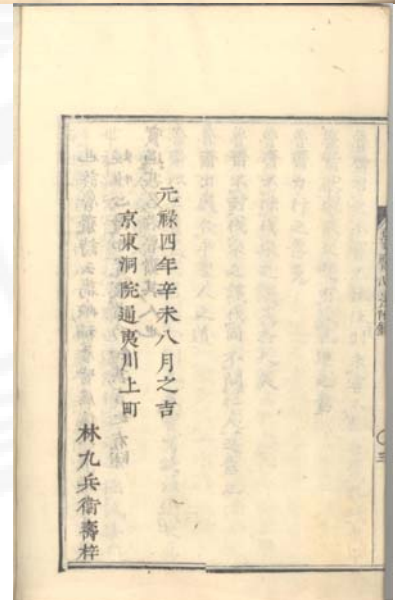 元禄四年辛未八月之吉
京東洞院通夷川上町
林九兵衞壽梓